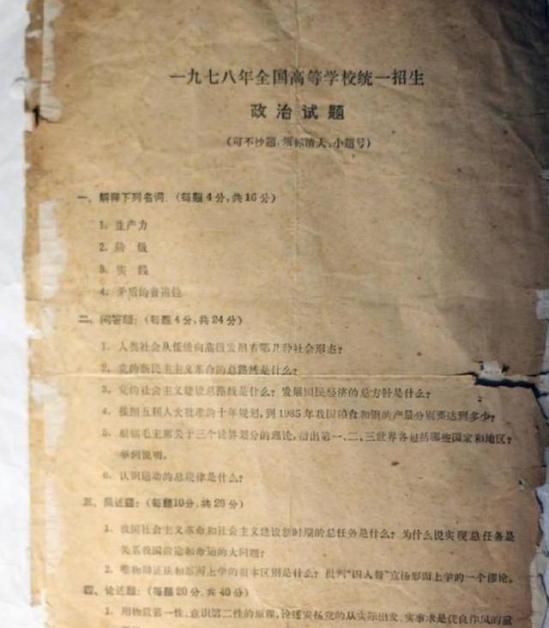 一九七八年全国高等学校统一招生
政治试题
(可不抄题,须标清大、小题号)
一、解释下列名词 (每题4分,共16分)
1. 生产力
2. 阶 级
3. 实 践
4. 矛盾的普遍性
二、问答题: (每题4分,共24分)
1. 人类社会从低级向高级发展有哪几种社会形态?
2. 党的新民主主义革命的总路线是什么?
3. 党的社会主义建设总路线是什么? 发展国民经济的总方针是什么?
4. 按照五届人大批准的十年规划,到1985年我国粮食和钢的产量分别要达到多少?
5. 根据毛主席关于三个世界划分的理论,指出第一、二、三世界各包括哪些国家和地区?
举例说明。
6. 认识运动的总规律是什么?
三、简述题: (每题10分,共20分)
1. 我国社会主义革命和社会主义建设新时期的总任务是什么? 为什么说实现总任务是
关系我国前途和命运的大问题?
2. 唯物辩证法和形而上学的根本区别是什么? 批判“四人帮”宣扬形而上学的一个谬论。
四、论述题: (每题20分,共40分)
1. 用物质第一性、意识第二性的原理,论述发扬党的从实际出发、实事求是优良作风的重